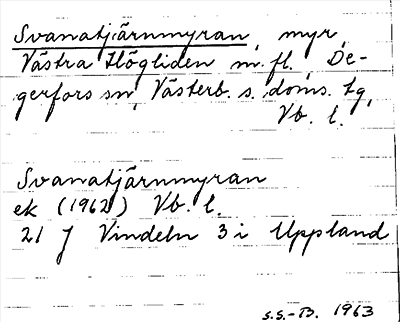 Svanatjärnmyran, myr,
Västra Högliden m.fl., De-
gerfors sn, Västerb. s. doms. tg,
Vb. l.
Svanatjärnmyran
ek (1962) Vb. l.
21 J Vindeln 3 i Uppland
S.S.-B. 1963